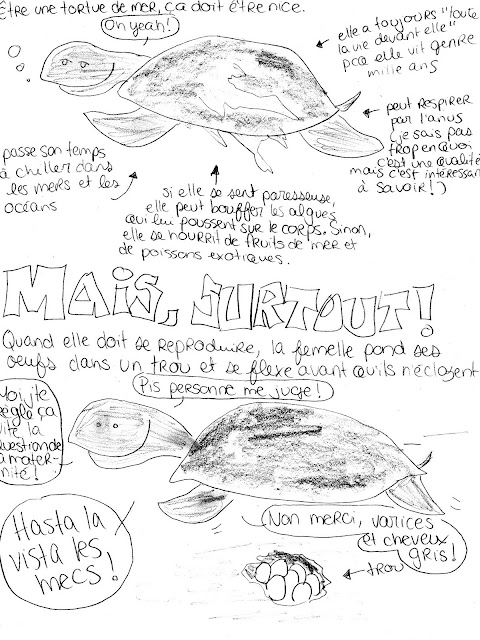 Être une tortue de mer, ça doit être nice.
Oh yeah!
elle a toujours "toute
la vie devant elle"
pcq elle vit genre
mille ans
peut respirer
par l'anus
(je sais pas
trop en quoi
c'est une qualité
mais c'est intéressant
à savoir!)
passe son temps
à chiller dans
les mers et les
océans
si elle se sent paresseuse,
elle peut bouffer les algues
qui lui poussent sur le corps. Sinon,
elle se nourrit de fruits de mer et
de poissons exotiques.
MAIS, SURTOUT!
Quand elle doit se reproduire, la femelle pond ses
oeufs dans un trou et se flexe avant qu'ils n'éclosent
Pis personne me juge!
Moi, j'te
règle ça
vite la
question de
la mater-
nité!
Hasta la
vista les
mecs!
Non merci, varices
et cheveux
gris!
trou